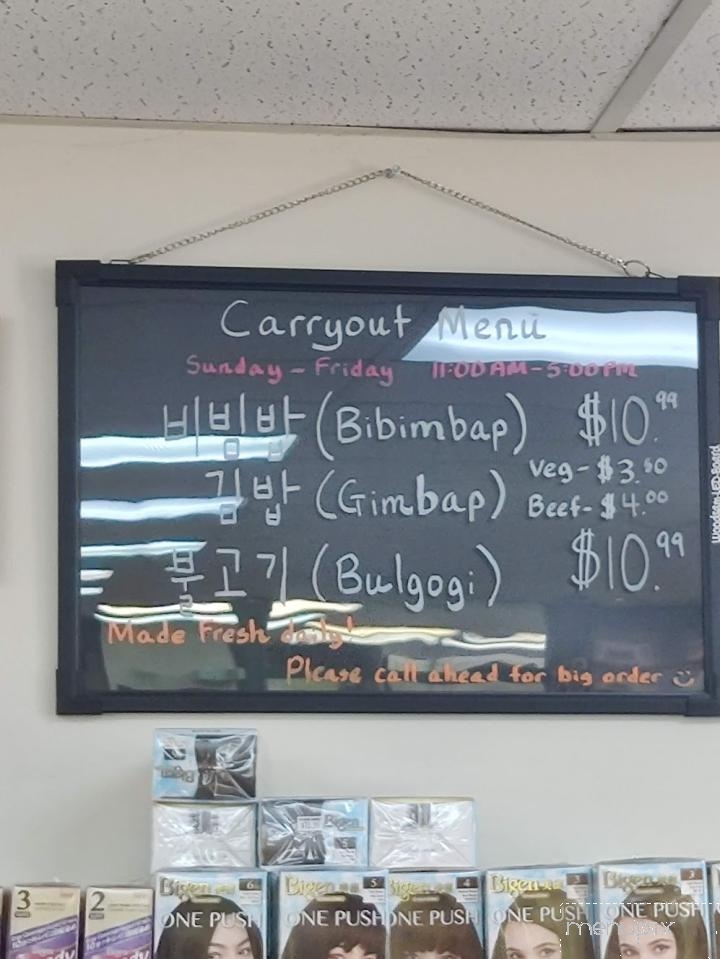 Carryout Menu
Sunday - Friday 11:00AM - 5:00PM
비빔밥 (Bibimbap) $10.99
김밥 (Gimbap) Veg - $3.50
Beef - $4.00
불고기 (Bulgogi) $10.99
Made Fresh daily!
Please call ahead for big order
Bigen
Bigen
3 2
Bigen 6 Bigen 5 Bigen 4 Bigen 3 Bigen 3
ONE PUSH ONE PUSH ONE PUSH ONE PUSH ONE PUSH